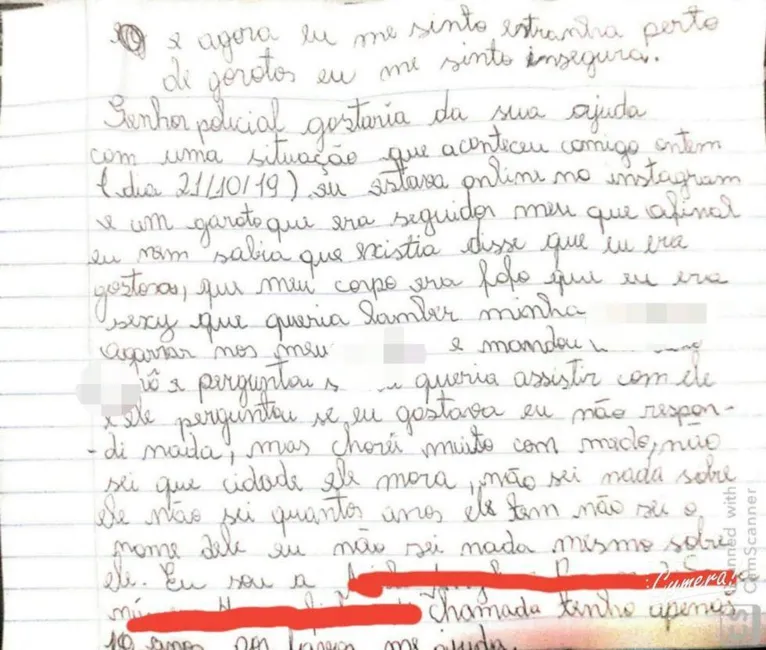 e agora eu me sinto estranha perto
de garotos eu me sinto insegura.
Senhor policial gostaria da sua ajuda
com uma situação que aconteceu comigo ontem
(dia 21/10/19) eu estava online no instagram
e um garoto que era seguidor meu que afinal
eu nem sabia que existia disse que eu era
gostosa, que meu corpo era fofo que eu era
sexy que queria lamber minha
agarrar nos meu e mandou
e perguntou queria assistir com ele
e ele perguntou se eu gostava eu não respon-
-di nada, mas chorei muito com medo, não
sei que cidade ele mora, não sei nada sobre
ele não sei quantos anos ele tem não sei o
nome dele eu não sei nada mesmo sobre
ele. Eu sou a
chamada tenho apenas
10 anos por favor me ajuda.
Scanned with
CamScanner